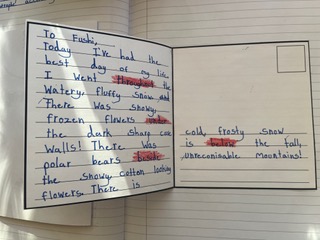 To Fushi,
Today I've had the
best day of my life
I went throughout the
Watery, fluffy snow and
There was snowy,
frozen flowers under
the dark sharp cave
Walls! There was
polar bears beside
the snowy, cotton looking
flowers. There is
cold, frosty snow
is below the tall,
unreconisable mountains!